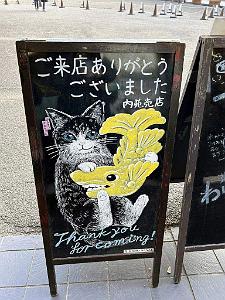 ご来店ありがとう
ございました
内苑売店
Thank you
for coming!
わ